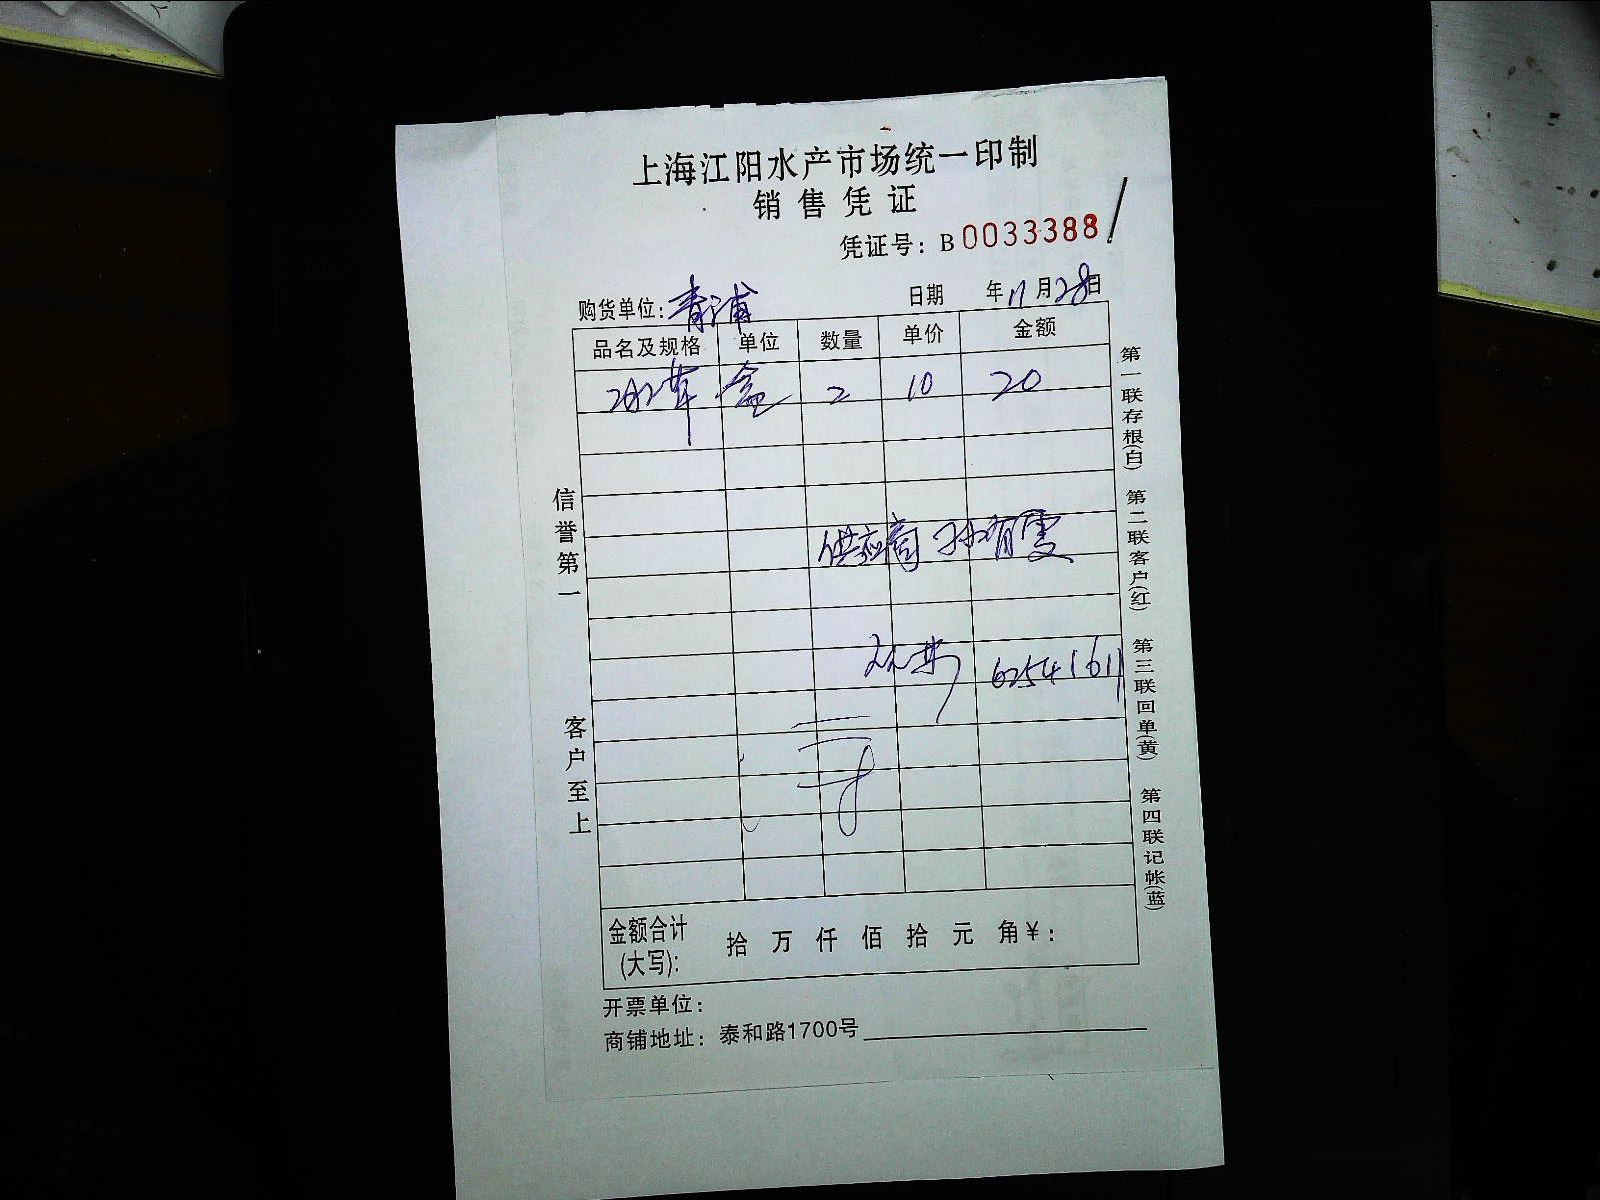 上海江阳水产市场统一印制
销售凭证
凭证号：B 0033388
购货单位：青浦 日期 年11月28日
品名及规格 单位 数量 单价 金额
盒 2 10 20
供应商 孙有雯
62541611
金额合计(大写)： 拾 万 仟 佰 拾 元 角￥：
开票单位：
商铺地址：泰和路1700号
信誉第一 客户至上
第一联存根(白) 第二联客户(红) 第三联回单(黄) 第四联记帐(蓝)